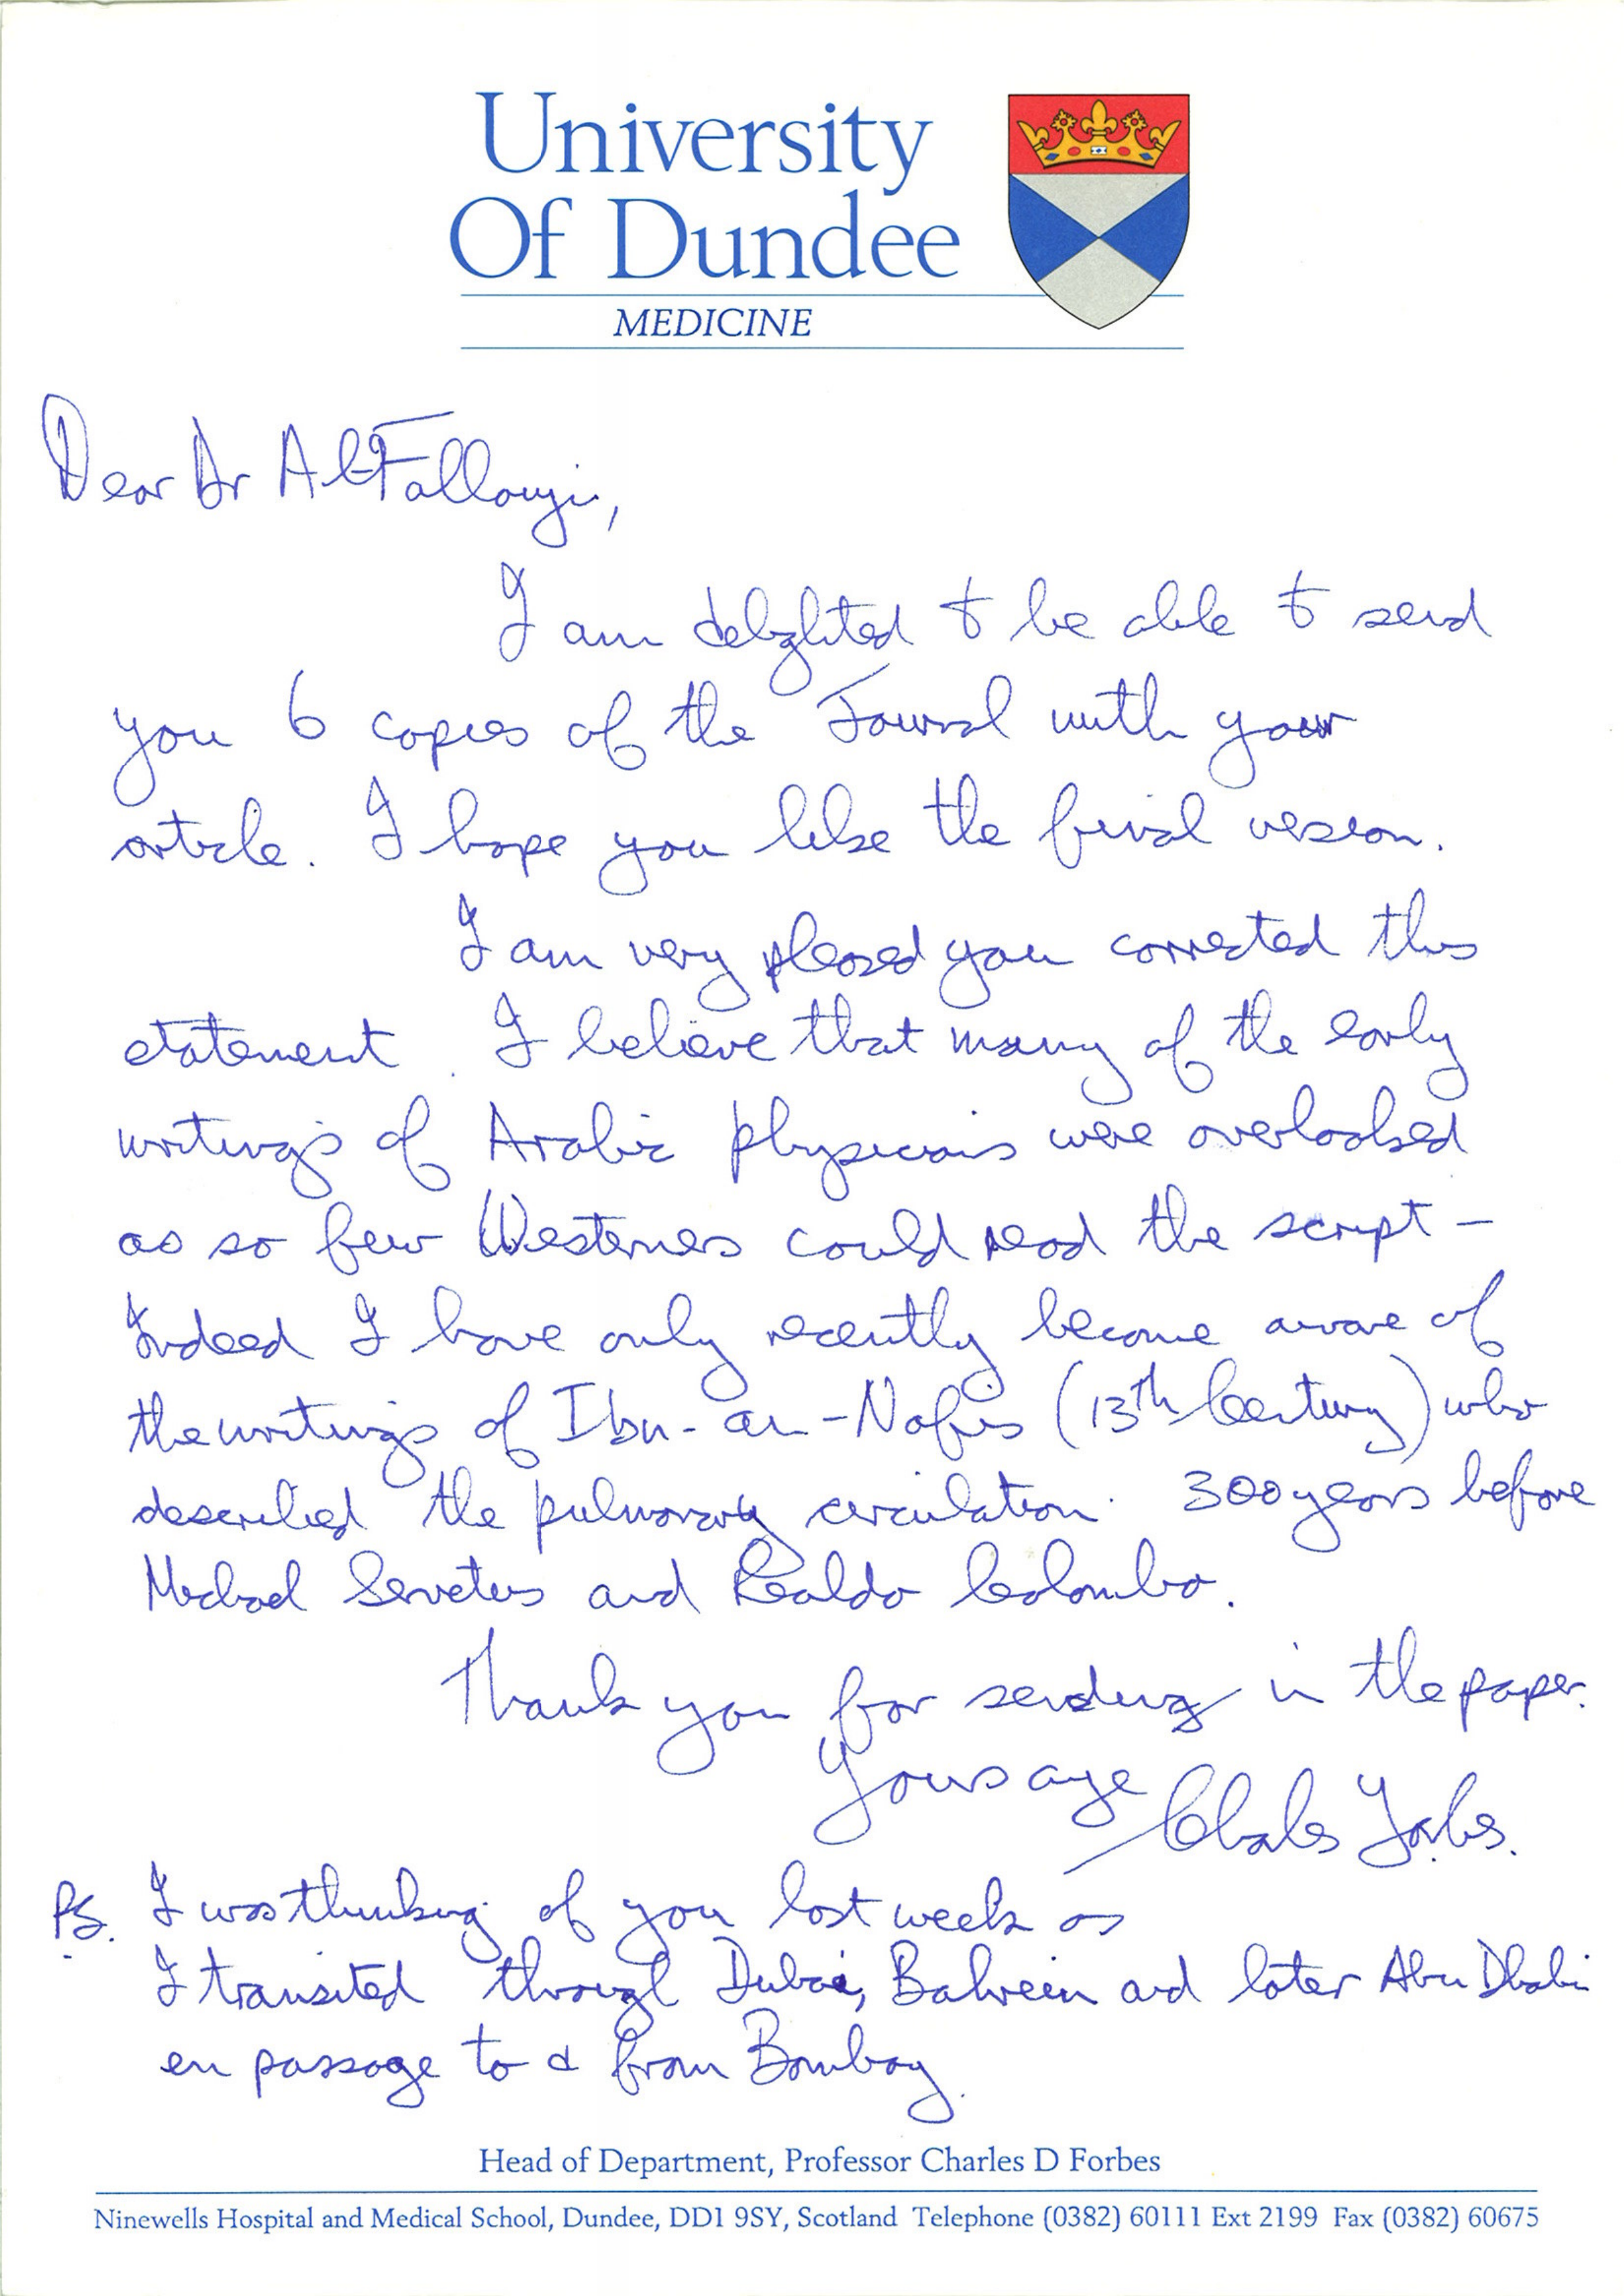 University
Of Dundee
MEDICINE
Dear Dr Al-Fallouji,
I am delighted to be able to send
you 6 copies of the Journal with your
article. I hope you like the final version.
I am very pleased you corrected this
statement. I believe that many of the early
writings of Arabic physicians were overlooked
as so few Westerners could read the script –
Indeed I have only recently become aware of
the writings of Ibn-an-Nafis (13th Century) who
described the pulmonary circulation 300 years before
Michael Servetus and Realdo Colombo.
Thank you for sending in the paper.
Yours aye
Charles Forbes.
PS. I was thinking of you last week as
I transited through Dubai, Bahrein and later Abu Dhabi
en passage to & from Bombay.
Head of Department, Professor Charles D Forbes
Ninewells Hospital and Medical School, Dundee, DD1 9SY, Scotland Telephone (0382) 60111 Ext 2199 Fax (0382) 60675